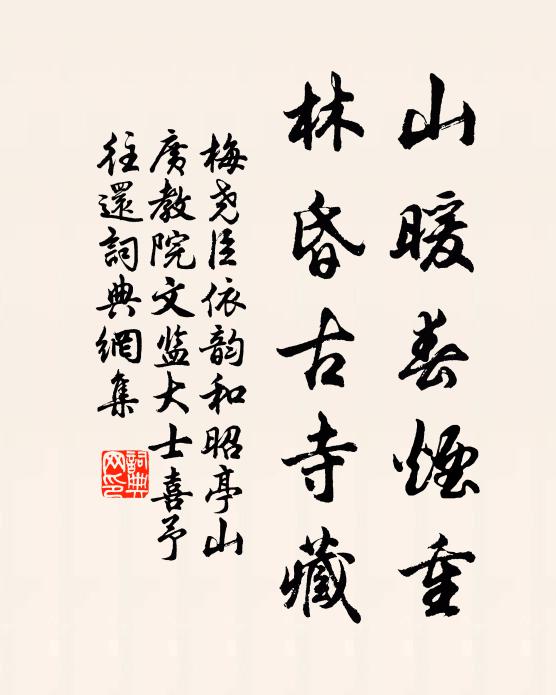 山暖春煙重
林昏古寺藏
梅尧臣依韵和昭亭山
廣教院文监大士喜予
往還詞典網集
詞典
网印